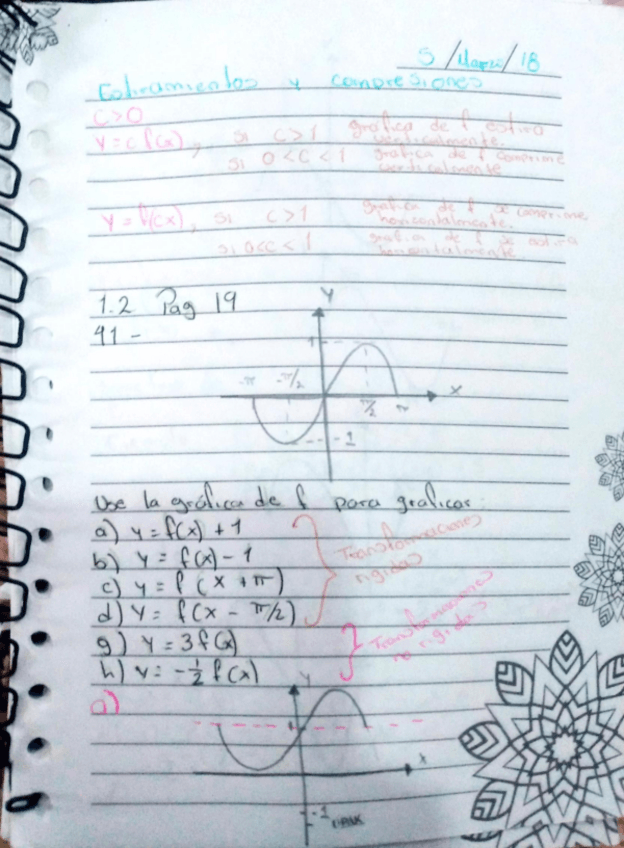 5 / Marzo / 18
Estiramientos y compresiones
C>0
y = c f(x), si C>1 gráfica de f estira
verticalmente.
si 0<C<1 gráfica de f comprime
verticalmente
y = f(cx), si C>1 grafica de f se comprime
horizontalmente.
si 0<c<1 grafica de f se estira
horizontalmente
1.2 Pag 19
41-
y
1
-π -π/2 π/2 π x
-1
Use la gráfica de f para graficar:
a) y = f(x) + 1
b) y = f(x) - 1
c) y = f(x + π)
d) y = f(x - π/2)
Transformaciones
rigidas
g) y = 3f(x)
h) y = -1/2 f(x)
Transformaciones
no rigidas
a)
y
1
x
-1